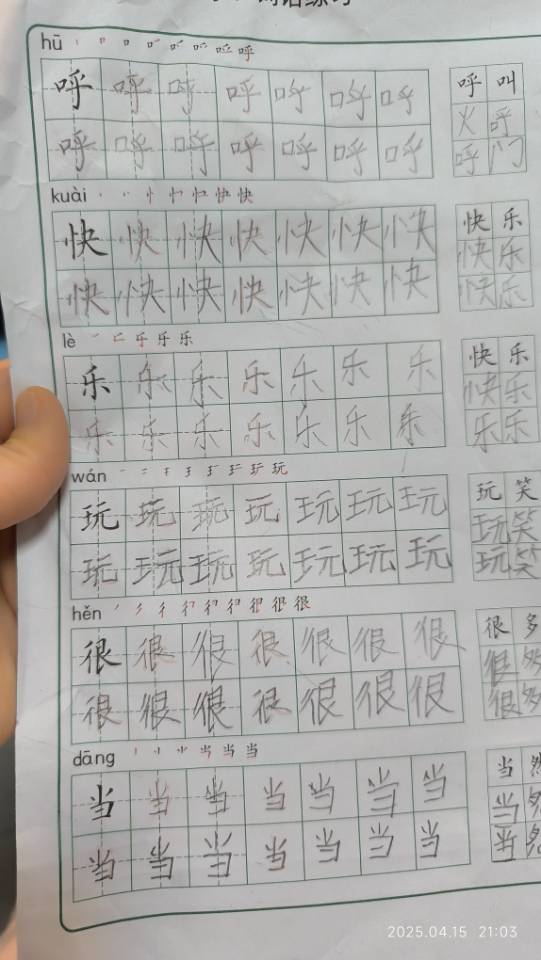 hū
呼 呼 呼 呼 呼 呼 呼 呼 叫
火 呼
呼 呼 呼 呼 呼 呼 呼 呼 门
kuài
快 快 快 快 快 快 快 快 乐
快 乐
快 快 快 快 快 快 快 快 乐
lè
乐 乐 乐 乐 乐 乐 乐 快 乐
快 乐
乐 乐 乐 乐 乐 乐 乐 乐 乐
wán
玩 玩 玩 玩 玩 玩 玩 玩 笑
玩 笑
玩 玩 玩 玩 玩 玩 玩 玩 笑
hěn
很 很 很 很 很 很 很 很 多
很 多
很 很 很 很 很 很 很 很 多
dāng
当 当 当 当 当 当 当 当 然
当
当 当 当 当 当 当 当 当
2025.04.15 21:03